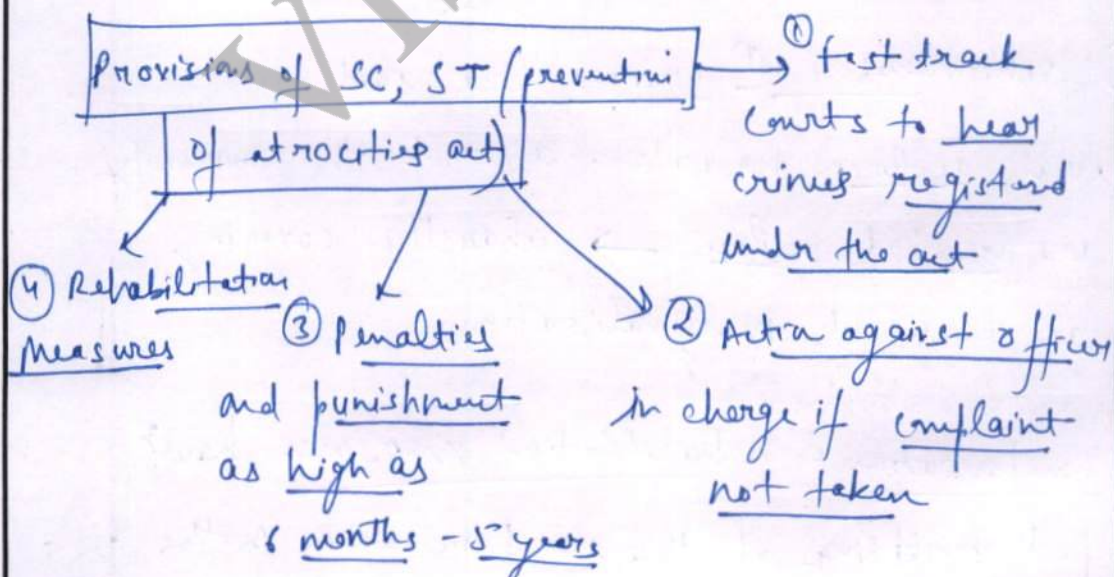 Provisions of SC, ST (prevention
of atrocities act)
① fast track
courts to hear
crimes registerd
under the act
② Action against officer
in charge if complaint
not taken
③ Penalties
and punishment
as high as
6 months - 5 years
④ Rehabilitation
Measures